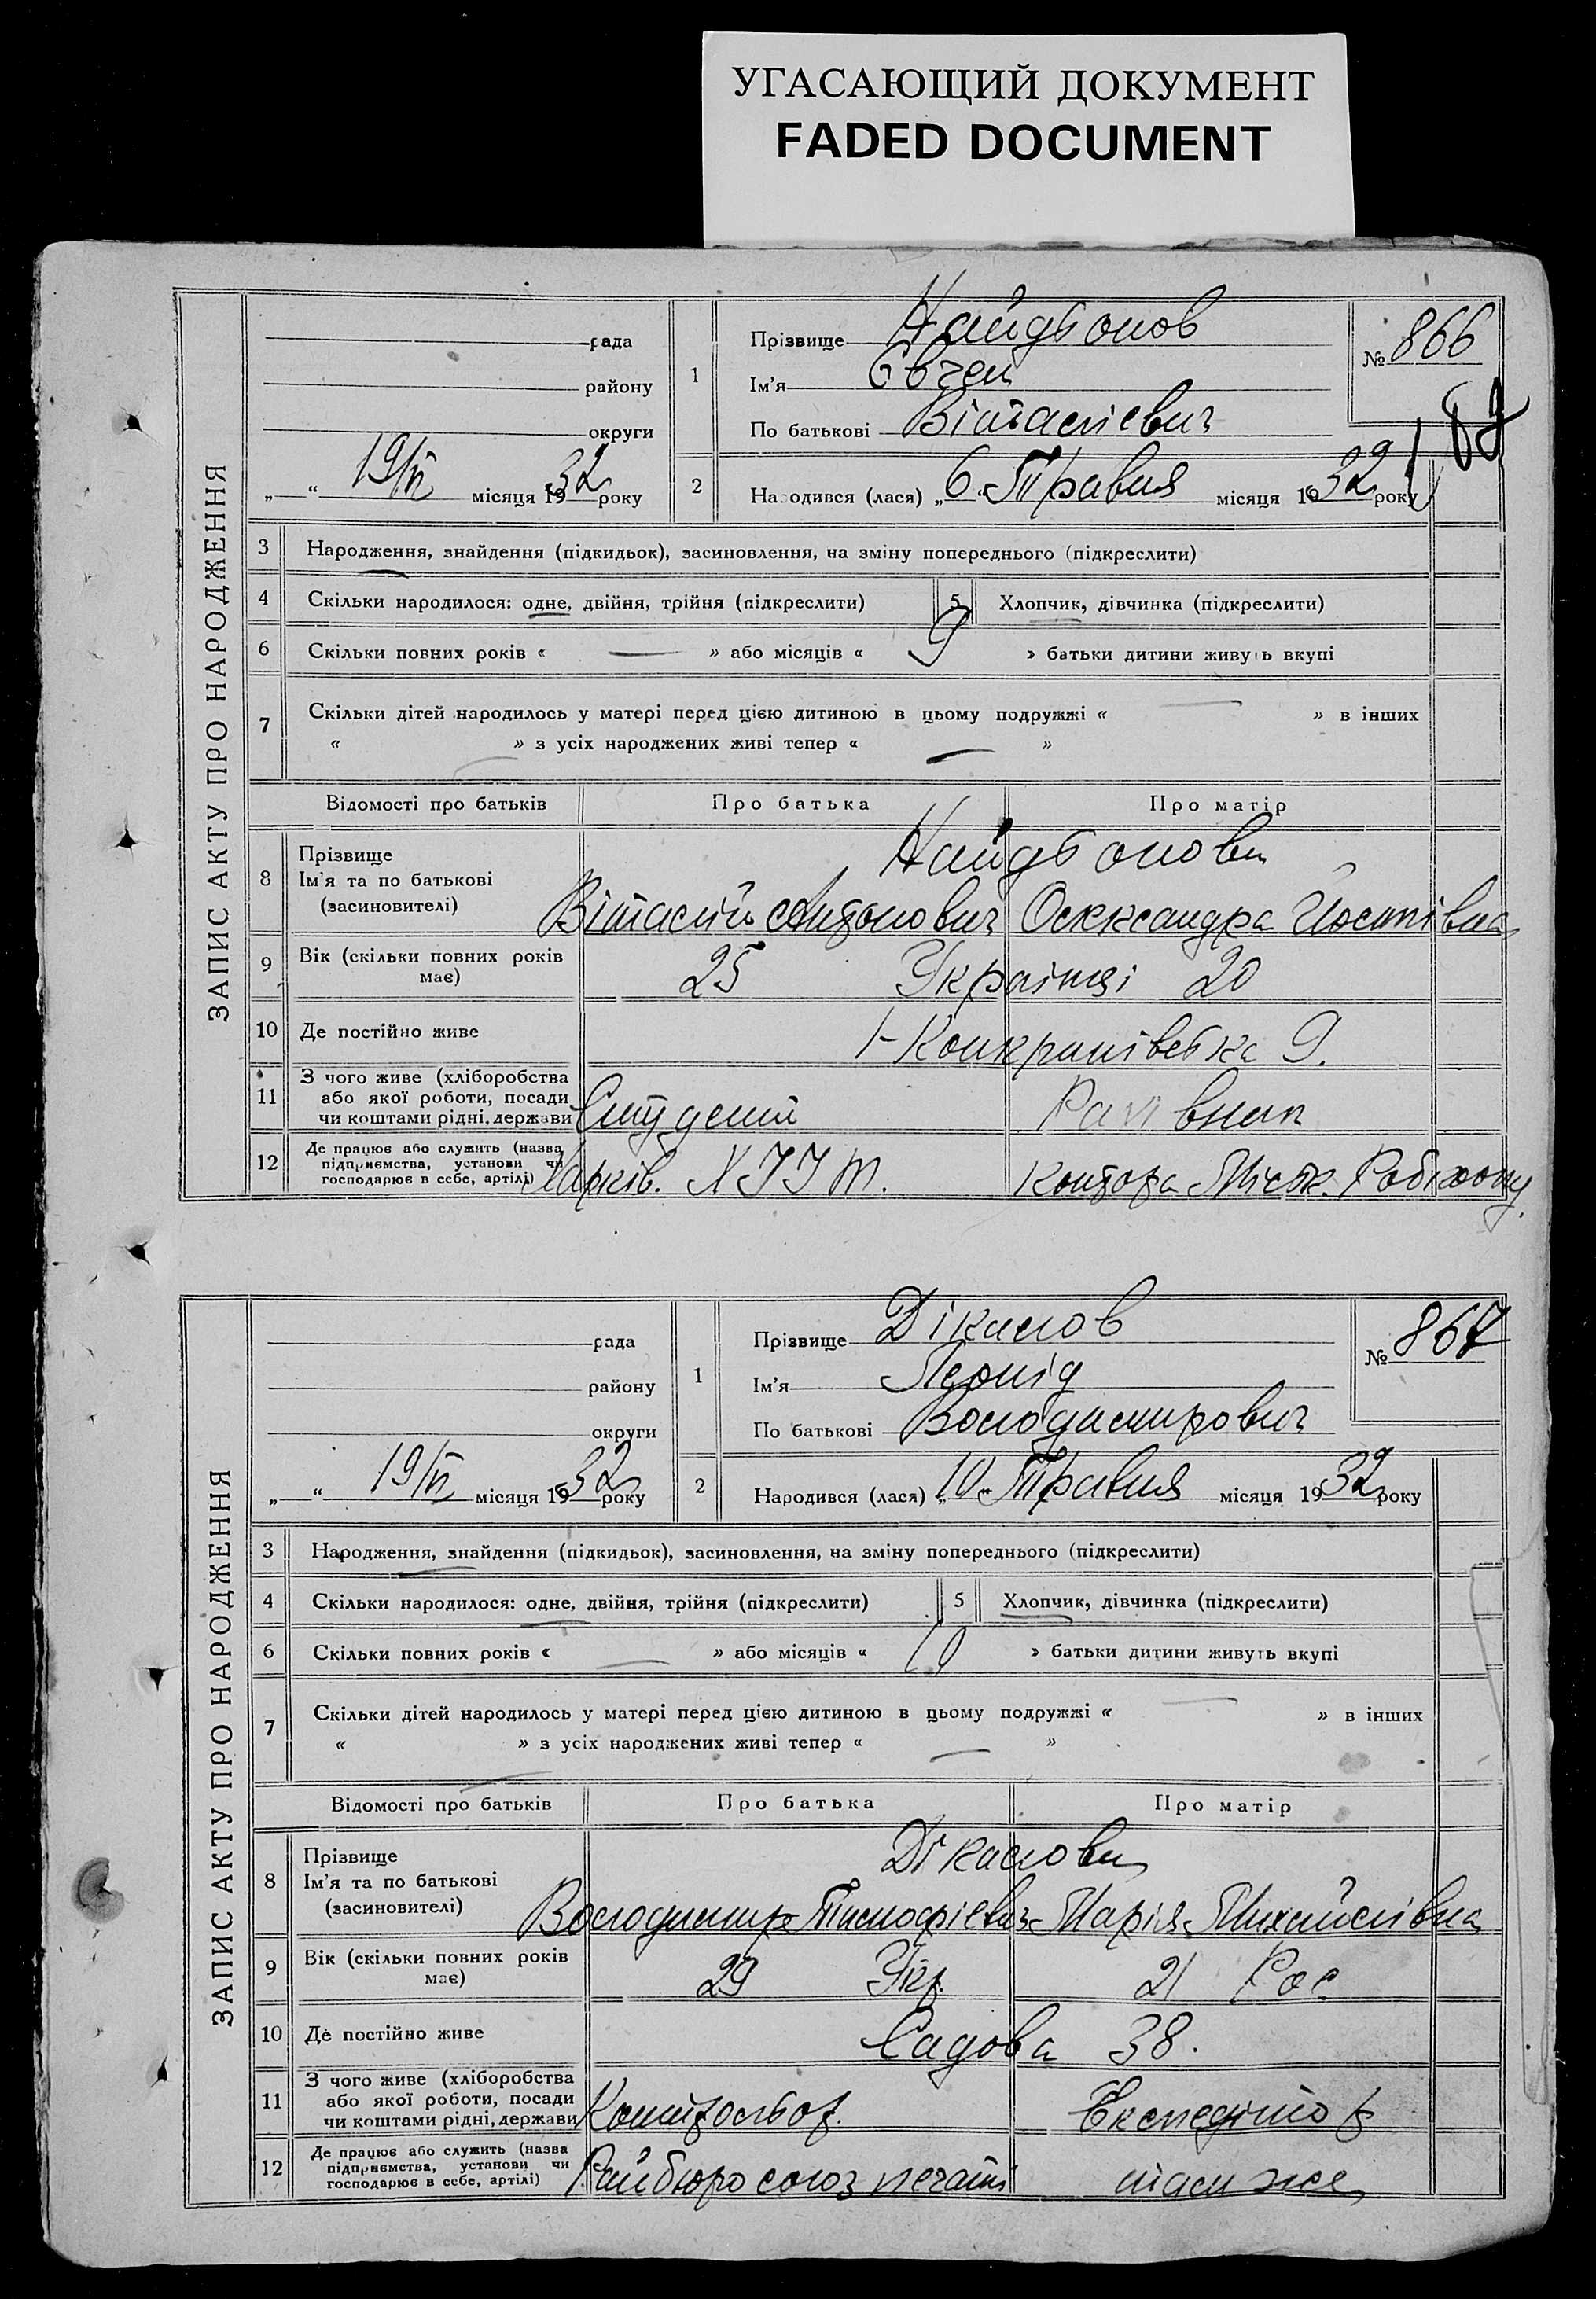 УГАСАЮЩИЙ ДОКУМЕНТ
FADED DOCUMENT
ЗАПИС АКТУ ПРО НАРОДЖЕННЯ
рада
району
округи
„ “ 19/VI місяця 1932 року
1
Прізвище Найдьонов
Ім'я Євген
По батькові Віталієвич
№ 866
2
Народився (лася) „6“ Травня місяця 1932 року
3 Народження, знайдення (підкидьок), засиновлення, на зміну попереднього (підкреслити)
4 Скільки народилося: одне, двійня, трійня (підкреслити) 5 Хлопчик, дівчинка (підкреслити)
6 Скільки повних років « — » або місяців « 9 » батьки дитини живуть вкупі
7 Скільки дітей народилось у матері перед цією дитиною в цьому подружжі « — » в інших
« — » з усіх народжених живі тепер « — »
Відомості про батьків Про батька Про матір
8 Прізвище
Ім'я та по батькові
(засиновителі)
Найдьонови
Віталій Антонович Олександра Йосипівна
9 Вік (скільки повних років має) 25 Українці 20
10 Де постійно живе 9.
11 З чого живе (хліборобства
або якої роботи, посади
чи коштами рідні, держави Студент Рахівник
12 Де працює або служить (назва
підприємства, установи чи
господарює в себе, артілі) Харків. Контора
ЗАПИС АКТУ ПРО НАРОДЖЕННЯ
рада
району
округи
„ “ 19/VI місяця 1932 року
1
Прізвище Дікалов
Ім'я Леонід
По батькові Володимирович
№ 867
2
Народився (лася) „10“ Травня місяця 1932 року
3 Народження, знайдення (підкидьок), засиновлення, на зміну попереднього (підкреслити)
4 Скільки народилося: одне, двійня, трійня (підкреслити) 5 Хлопчик, дівчинка (підкреслити)
6 Скільки повних років « — » або місяців « 10 » батьки дитини живуть вкупі
7 Скільки дітей народилось у матері перед цією дитиною в цьому подружжі « — » в інших
« — » з усіх народжених живі тепер « — »
Відомості про батьків Про батька Про матір
8 Прізвище
Ім'я та по батькові
(засиновителі)
Дікалови
Володимир Тимофієвич Марія Михайлівна
9 Вік (скільки повних років має) 29 Укр. 21 Рос
10 Де постійно живе Садова 38.
11 З чого живе (хліборобства
або якої роботи, посади
чи коштами рідні, держави Контрольор. Експедітор
12 Де працює або служить (назва
підприємства, установи чи
господарює в себе, артілі) Райбюро союз печаті там же